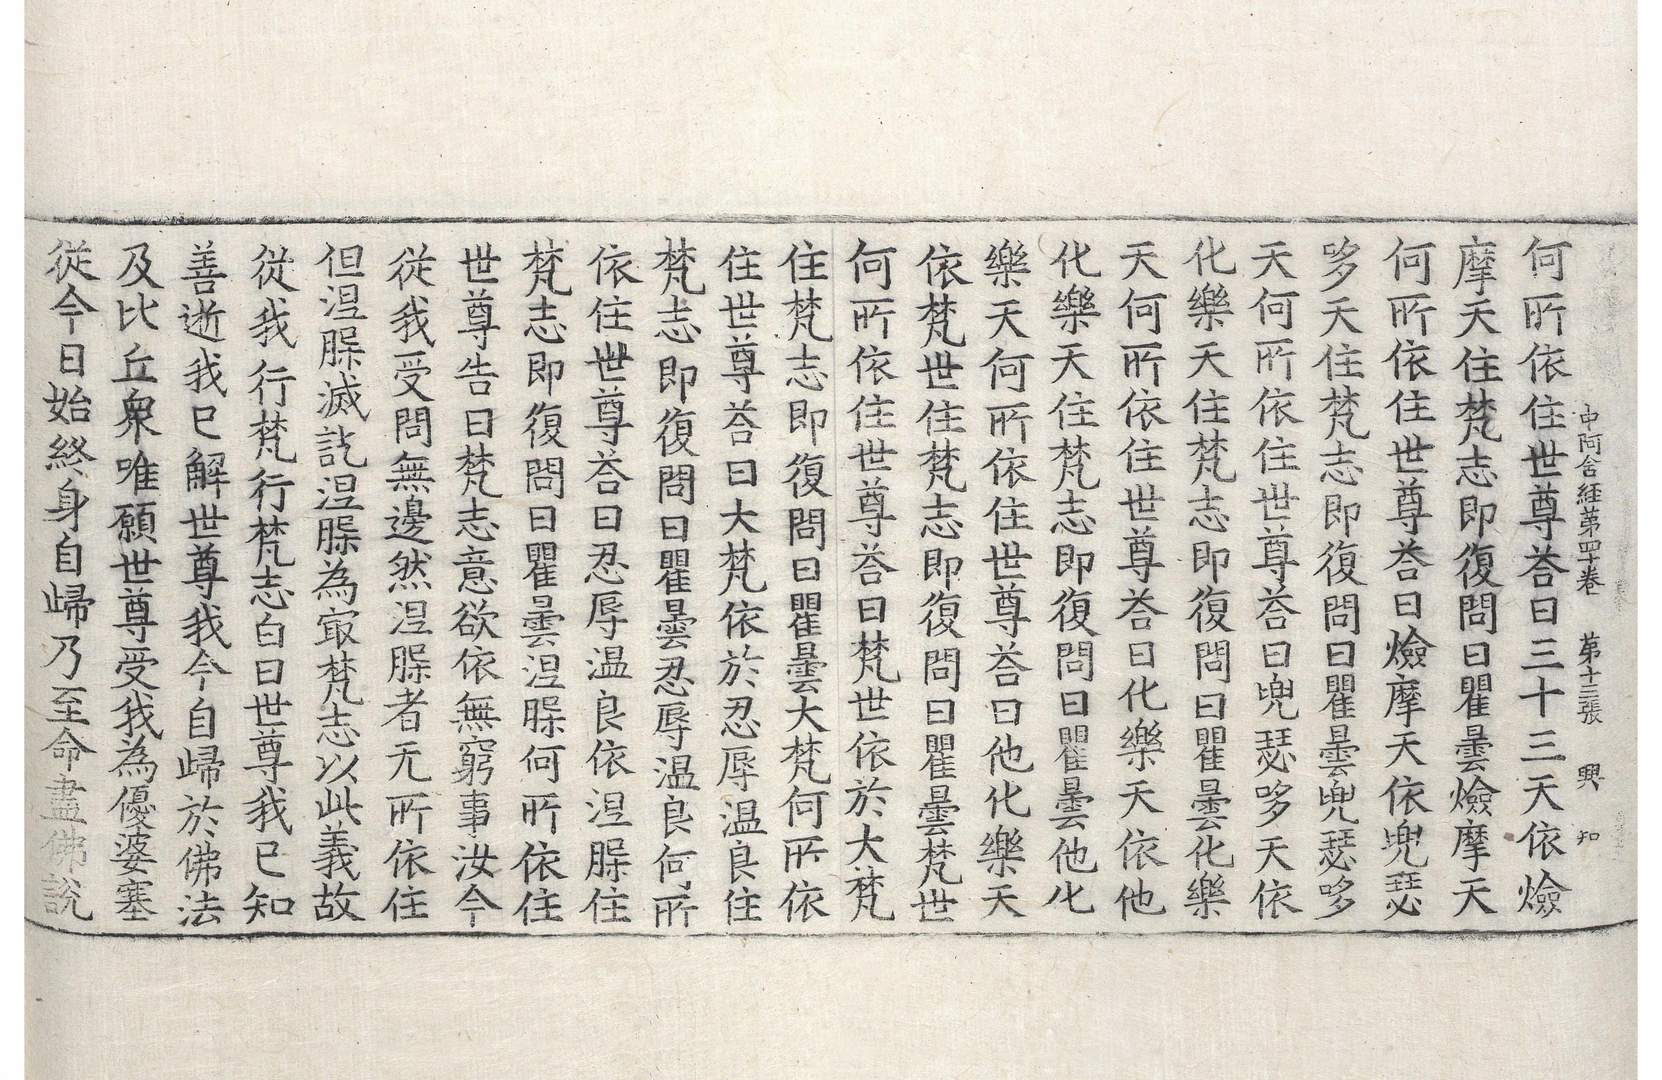 中阿含経苐四十卷 苐十三張 興 知
何所依住世尊荅曰三十三天依燄
摩天住梵志即復問曰瞿曇燄摩天
何所依住世尊荅曰燄摩天依兜瑟
哆天住梵志即復問曰瞿曇兜瑟哆
天何所依住世尊荅曰兜瑟哆天依
化樂天住梵志即復問曰瞿曇化樂
天何所依住世尊荅曰化樂天依他
化樂天住梵志即復問曰瞿曇他化
樂天何所依住世尊荅曰他化樂天
依梵世住梵志即復問曰瞿曇梵世
何所依住世尊荅曰梵世依於大梵
住梵志即復問曰瞿曇大梵何所依
住世尊荅曰大梵依於忍辱温良住
梵志即復問曰瞿曇忍辱温良何所
依住世尊荅曰忍辱温良依涅槃住
梵志即復問曰瞿曇涅槃何所依住
世尊告曰梵志意欲依無窮事汝今
從我受問無邊然涅槃者无所依住
但涅槃滅訖涅槃為㝡梵志以此義故
從我行梵行梵志白曰世尊我已知
善逝我已解世尊我今自歸於佛法
及比丘衆唯願世尊受我為優婆塞
從今日始終身自歸乃至命盡佛說